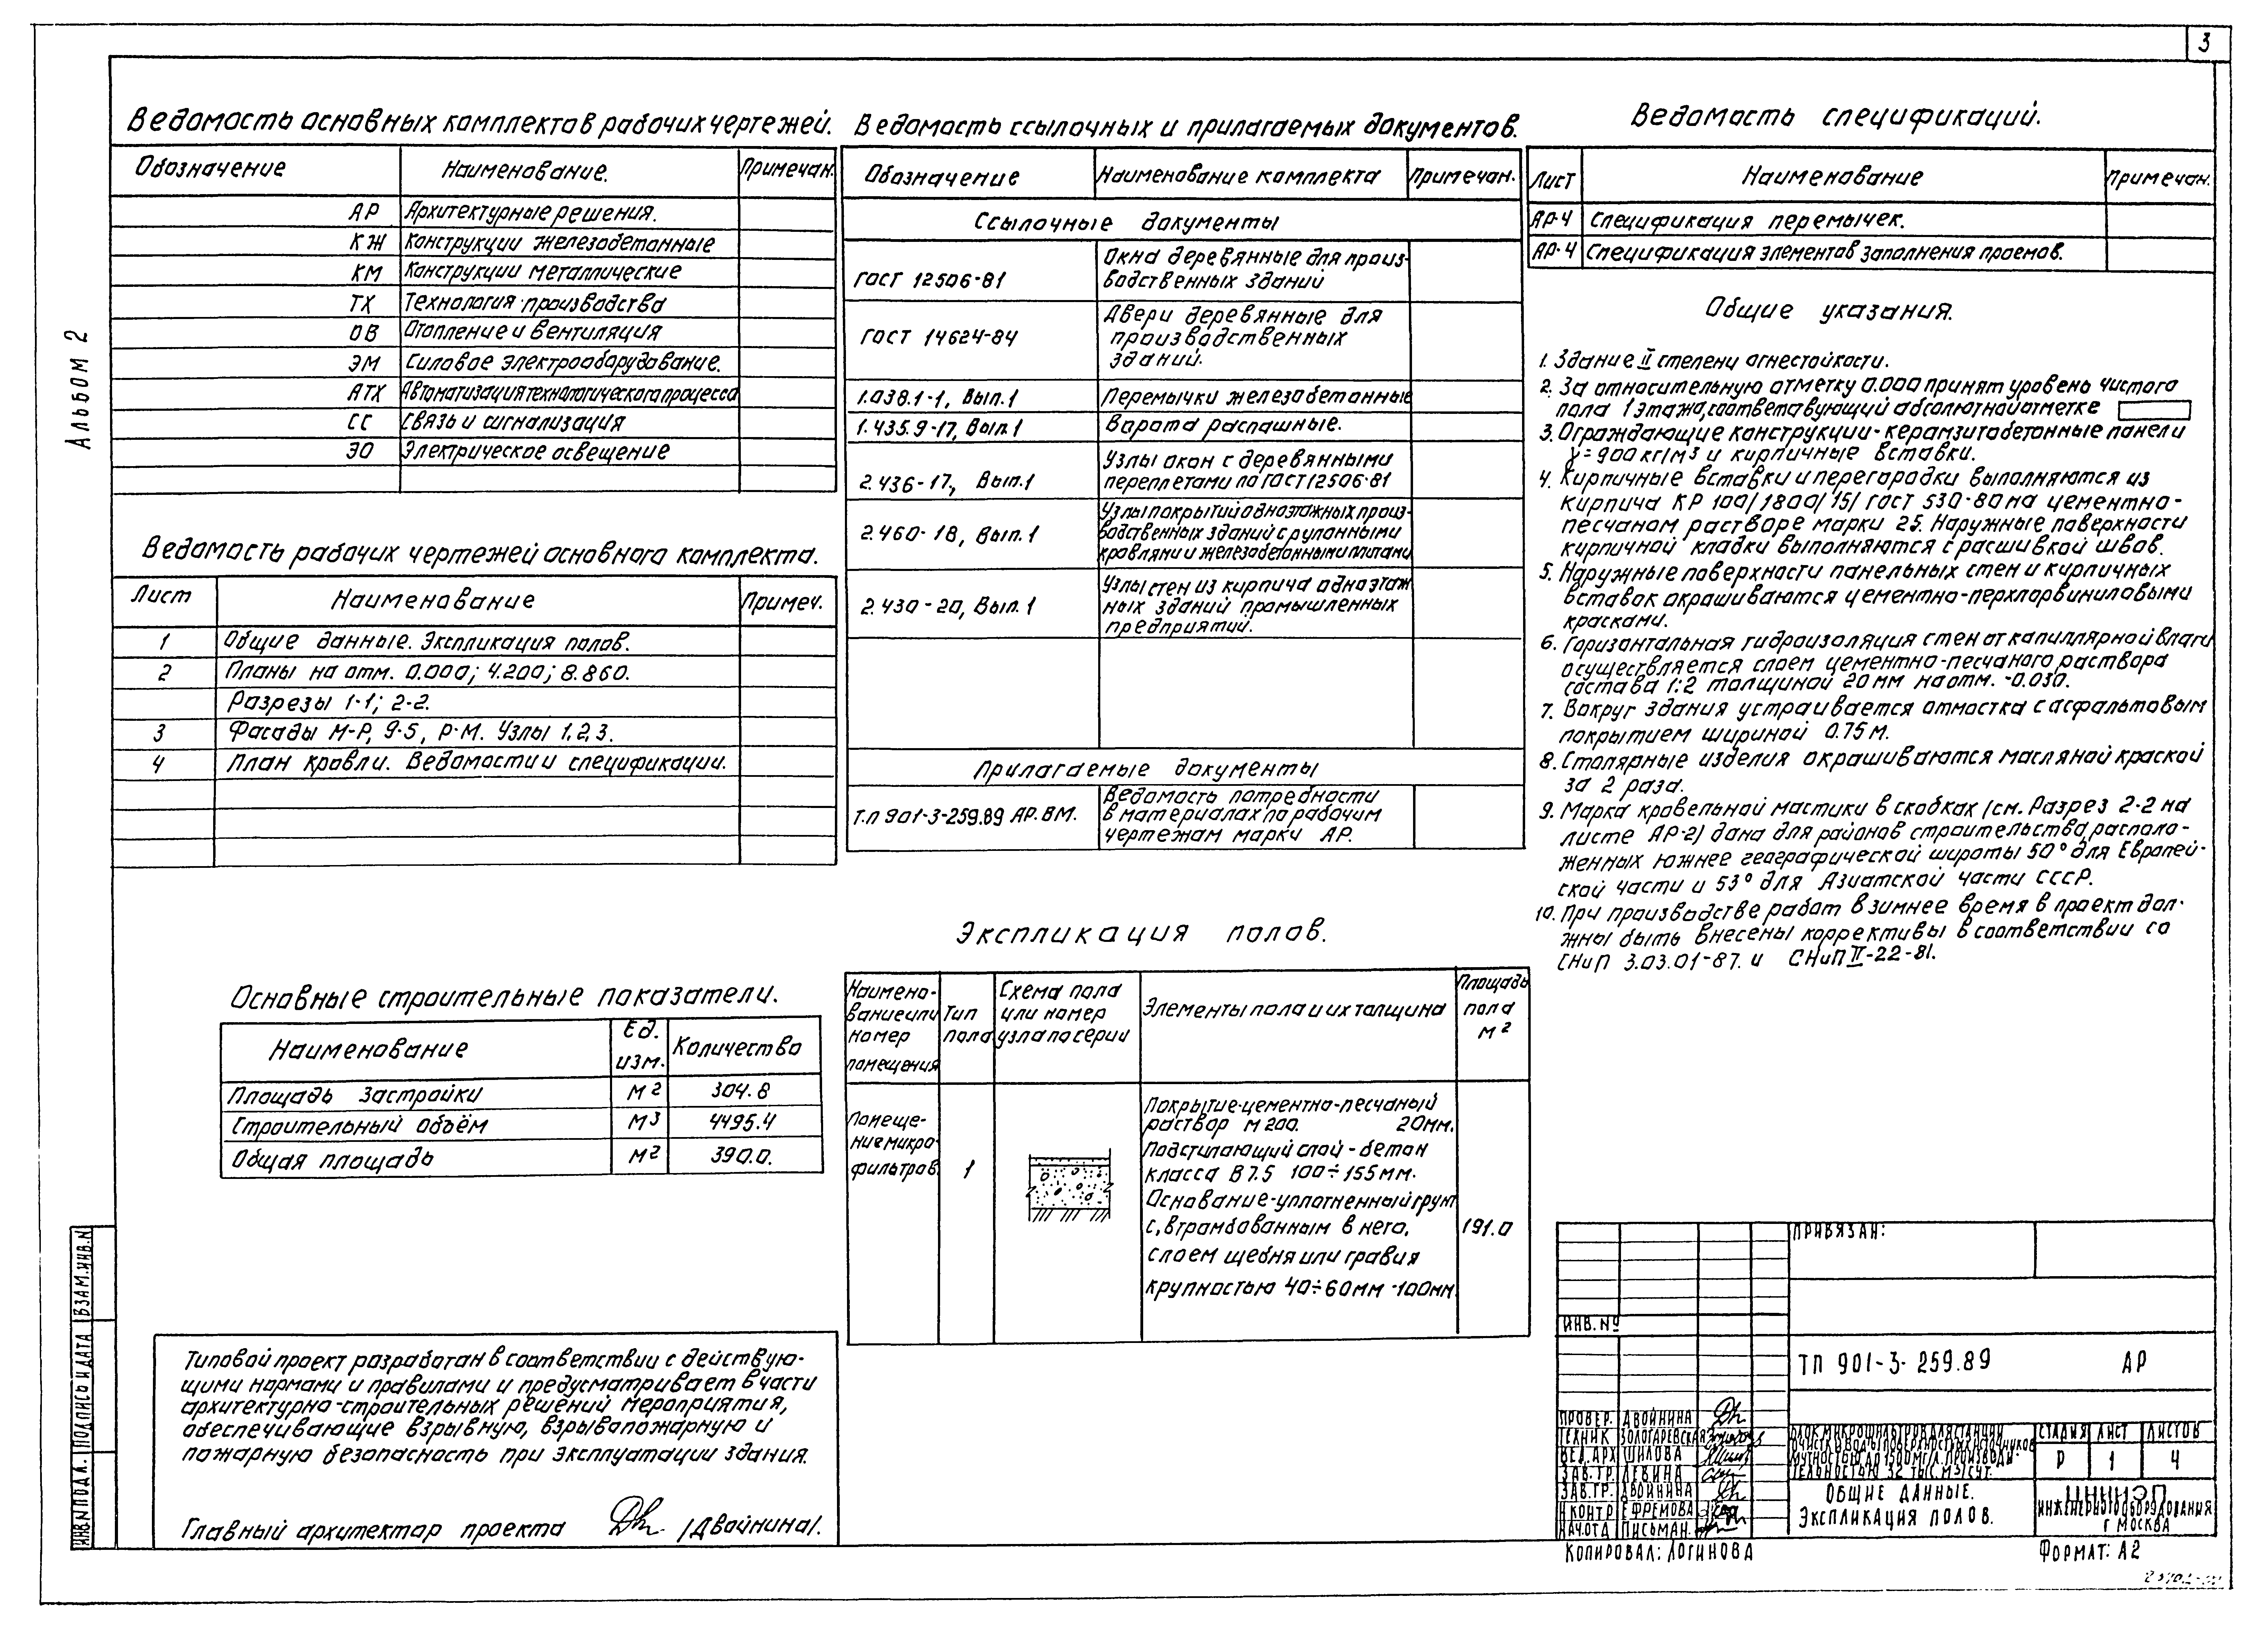 3
Альбом 2
Ведомость основных комплектов рабочих чертежей.
Обозначение Наименование. Примечан.
АР Архитектурные решения.
КЖ Конструкции железобетонные
КМ Конструкции металлические
ТХ Технология производства
ОВ Отопление и вентиляция
ЭМ Силовое электрооборудование.
АТХ Автоматизация технологического процесса
СС Связь и сигнализация
ЭО Электрическое освещение
Ведомость рабочих чертежей основного комплекта.
Лист Наименование Примеч.
1 Общие данные. Экспликация полов.
2 Планы на отм. 0.000; 4.200; 8.860.
Разрезы 1-1; 2-2.
3 Фасады М-Р, 9-5, Р-М. Узлы 1,2,3.
4 План кровли. Ведомости и спецификации.
Основные строительные показатели.
Наименование Ед. изм. Количество
Площадь застройки м2 304.8
Строительный объём м3 4495.4
Общая площадь м2 390.0.
Типовой проект разработан в соответствии с действую-
щими нормами и правилами и предусматривает в части
архитектурно-строительных решений мероприятия,
обеспечивающие взрывную, взрывопожарную и
пожарную безопасность при эксплуатации здания.
Главный архитектор проекта /Двойнина/.
Ведомость ссылочных и прилагаемых документов.
Обозначение Наименование комплекта Примечан.
Ссылочные документы
ГОСТ 12506-81 Окна деревянные для произ-
водственных зданий
ГОСТ 14624-84 Двери деревянные для
производственных
зданий.
1.038.1-1, Вып.1 Перемычки железобетонные
1.435.9-17, Вып.1 Ворота распашные.
2.436-17, Вып.1 Узлы окон с деревянными
переплетами по ГОСТ 12506-81
2.460-18, Вып.1 Узлы покрытий одноэтажных произ-
водственных зданий с рулонными
кровлями и железобетонными плитами
2.430-20, Вып.1 Узлы стен из кирпича одноэтаж
ных зданий промышленных
предприятий.
Прилагаемые документы
Т.П 901-3-259.89 АР.ВМ. Ведомость потребности
в материалах по рабочим
чертежам марки АР.
Экспликация полов.
Наимено-
вание или
номер
помещения
Тип
пола
Схема пола
или номер
узла по серии
Элементы пола и их толщина
Площадь
пола
м2
Помеще-
ние микро-
фильтров
1
Покрытие-цементно-песчаный
раствор М 200. 20мм.
Подстилающий слой - бетон
класса В 7.5 100÷155мм.
Основание-уплотненный грунт
с, втрамбованным в него,
слоем щебня или гравия
крупностью 40÷60мм -100мм.
191.0
Ведомость спецификаций.
Лист Наименование Примечан.
АР-4 Спецификация перемычек.
АР-4 Спецификация элементов заполнения проемов.
Общие указания.
1. Здание II степени огнестойкости.
2. За относительную отметку 0.000 принят уровень чистого
пола 1 этажа, соответствующий абсолютной отметке
3. Ограждающие конструкции-керамзитобетонные панели
γ=900 кг/м3 и кирпичные вставки.
4. Кирпичные вставки и перегородки выполняются из
кирпича КР 100/1800/15/ ГОСТ 530-80 на цементно-
песчаном растворе марки 25. Наружные поверхности
кирпичной кладки выполняются с расшивкой швов.
5. Наружные поверхности панельных стен и кирпичных
вставок окрашиваются цементно-перхлорвиниловыми
красками.
6. Горизонтальная гидроизоляция стен от капиллярной влаги
осуществляется слоем цементно-песчаного раствора
состава 1:2 толщиной 20 мм на отм. -0.030.
7. Вокруг здания устраивается отмостка с асфальтовым
покрытием шириной 0.75 м.
8. Столярные изделия окрашиваются масляной краской
за 2 раза.
9. Марка кровельной мастики в скобках /см. Разрез 2-2 на
листе АР-2/ дана для районов строительства, располо-
женных южнее географической широты 50° для Европей-
ской части и 53° для Азиатской части СССР.
10. При производстве работ в зимнее время в проект дол-
жны быть внесены коррективы в соответствии со
СНиП 3.03.01-87. и СНиП II-22-81.
ПРИВЯЗАН:
ИНВ. №
ТП 901-3-259.89 АР
ПРОВЕР. ДВОЙНИНА
ТЕХНИК ЗОЛОГАРЕВСКАЯ
ВЕД.АРХ ШИЛОВА
ЗАВ.ГР. ЛЕВИНА
ЗАВ.ГР. ДВОЙНИНА
Н.КОНТР ЕФРЕМОВА
НАЧ.ОТД ПИСЬМАН.
БЛОК МИКРОФИЛЬТРОВ ДЛЯ СТАНЦИИ
ОЧИСТКИ ВОДЫ ПОВЕРХНОСТНЫХ ИСТОЧНИКОВ
МУТНОСТЬЮ ДО 1500 МГ/Л. ПРОИЗВОДИ-
ТЕЛЬНОСТЬЮ 32 ТЫС.М3/СУТ.
СТАДИЯ ЛИСТ ЛИСТОВ
Р 1 4
ОБЩИЕ ДАННЫЕ.
ЭКСПЛИКАЦИЯ ПОЛОВ.
ЦНИИЭП
ИНЖЕНЕРНОГО ОБОРУДОВАНИЯ
Г МОСКВА
КОПИРОВАЛ: ЛОГИНОВА
ФОРМАТ: А2
ИНВ.№ ПОДЛ. ПОДПИСЬ И ДАТА ВЗАМ.ИНВ.№